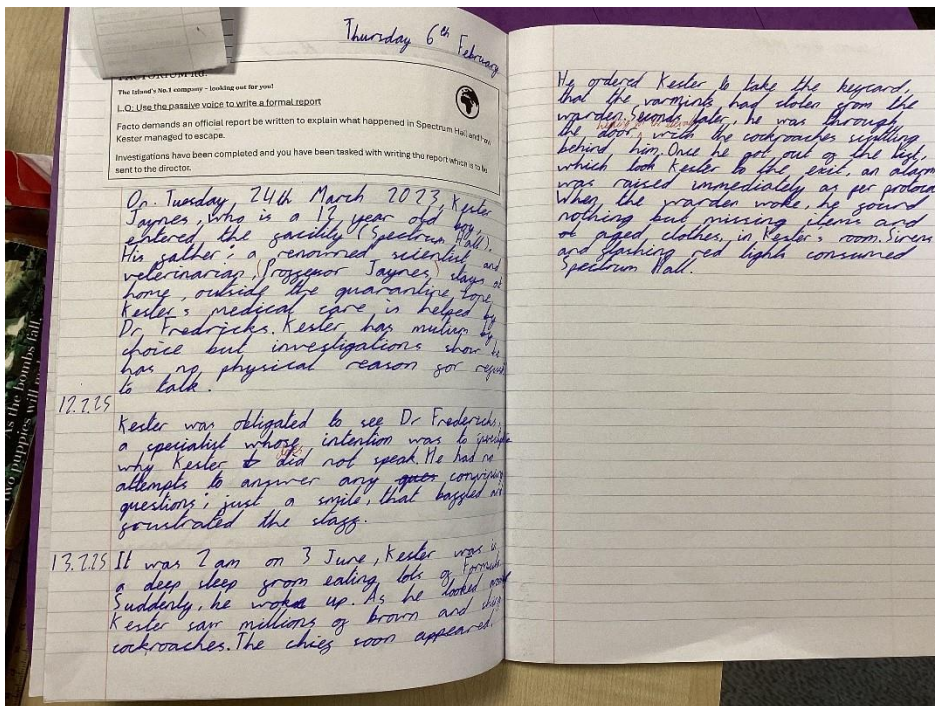 Thursday 6th February
FACTORIUM Rd.
The Island's No.1 company - looking out for you!
L.O: Use the passive voice to write a formal report
Facto demands an official report be written to explain what happened in Spectrum Hall and how
Kester managed to escape.
Investigations have been completed and you have been tasked with writing the report which is to be
sent to the director.
On Tuesday 24th March 2023, Kester
Jaynes, who is a 12 year old boy,
entered the facility (Spectrum Hall).
His father; a renowned scientist and
veterinarian, (Proffessor Jaynes) stays at
home, outside the quarantine zone.
Kester's medical care is helped by
Dr Fredricks. Kester has mutum by
choice but investigations show he
has no physical reason for
to talk.
12.2.25
Kester was obligated to see Dr Fredericks,
a specialist whose intention was to
why Kester did not speak. He had no
attempts to answer any convincing
questions; just a smile, that baffled and
frustrated the staff.
13.2.25 It was 2 am on 3 June, Kester was in
a deep sleep from eating lots of Formula.
Suddenly, he woke up. As he looked around
Kester saw millions of brown and shiny
cockroaches. The chief soon appeared.
He ordered Kester to take the keycard,
that the varmints had stolen from the
warden. Seconds later, he was through
the door, with the cockroaches scuttling
behind him. Once he got out of the
which took Kester to the exit, an alarm
was raised immediately as per protocol
When the warden woke, he found
nothing but missing items and
aged clothes, in Kester's room. Sirens
and flashing red lights consumed
Spectrum Hall.
As the bombs fall,
two puppies will